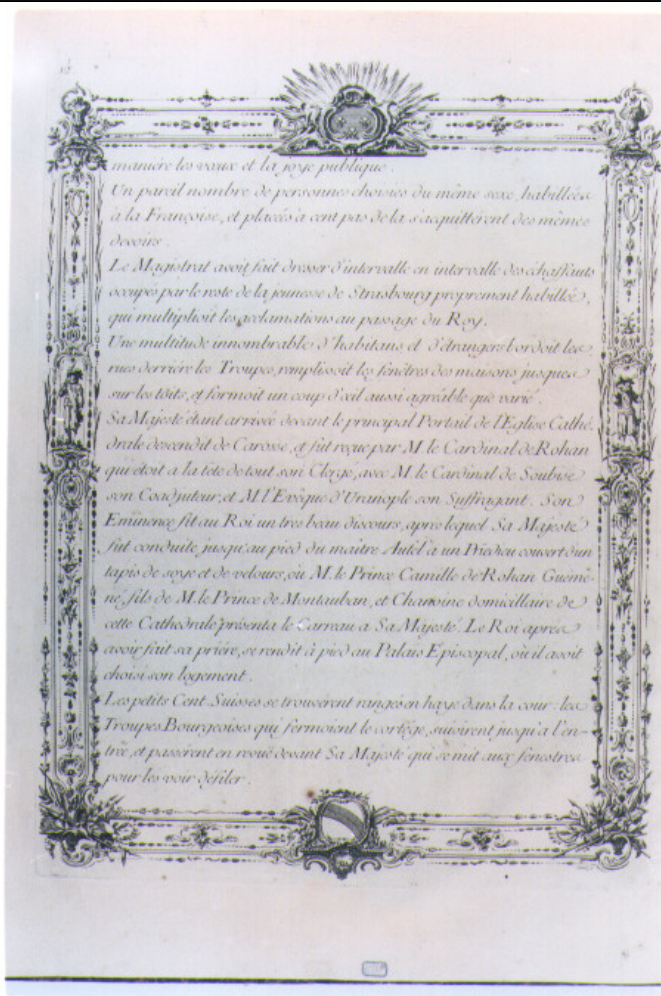 maniére les vœux et la joye publique.
Un pareil nombre de personnes choisies du même sexe, habillées
à la Françoise, et placés à cent pas de la s'acquittérent des mêmes
devoirs.
Le Magistrat avoit fait dresser d'intervalle en intervalle des échaffauts
occupés par le reste de la jeunesse de Strasbourg proprement habillée,
qui multiplioit les acclamations au passage du Roy.
Une multitude innombrable d'habitans, et d'étrangers bordoit les
rues derriére les Troupes, remplissoit les fenêtres des maisons jusques
sur les tôits, et formoit un coup d'œil aussi agréable que varié.
Sa Majesté étant arrivée devant le principal Portail de l'Eglise Cathé-
drale descendit de Carosse, et fut reçue par M. le Cardinal de Rohan
qui étoit a la tête de tout son Clergé, avec M. le Cardinal de Soubise
son Coadjuteur, et M. l'Evêque d'Uranople son Suffragant. Son
Eminence fit au Roi un tres beau discours, aprés lequel Sa Majesté
fut conduite jusqu'au pied du maître Autel à un Priedieu couvert d'un
tapis de soye et de velours, où M. le Prince Camille de Rohan Guemé-
né, fils de M. le Prince de Montauban, et Chanoine domicillaire de
cette Cathedrale présenta le Carreau a Sa Majesté. Le Roi aprés
avoir fait sa priére, se rendit à pied au Palais Episcopal, où il avoit
choisi son logement.
Les petits Cent Suisses se trouvérent rangés en haye dans la cour: les
Troupes Bourgeoises qui fermoient le cortége, suivirent jusqu'a l'en-
trée, et passérent en revuë devant Sa Majesté qui se mit aux fenestres
pour les voir défiler.